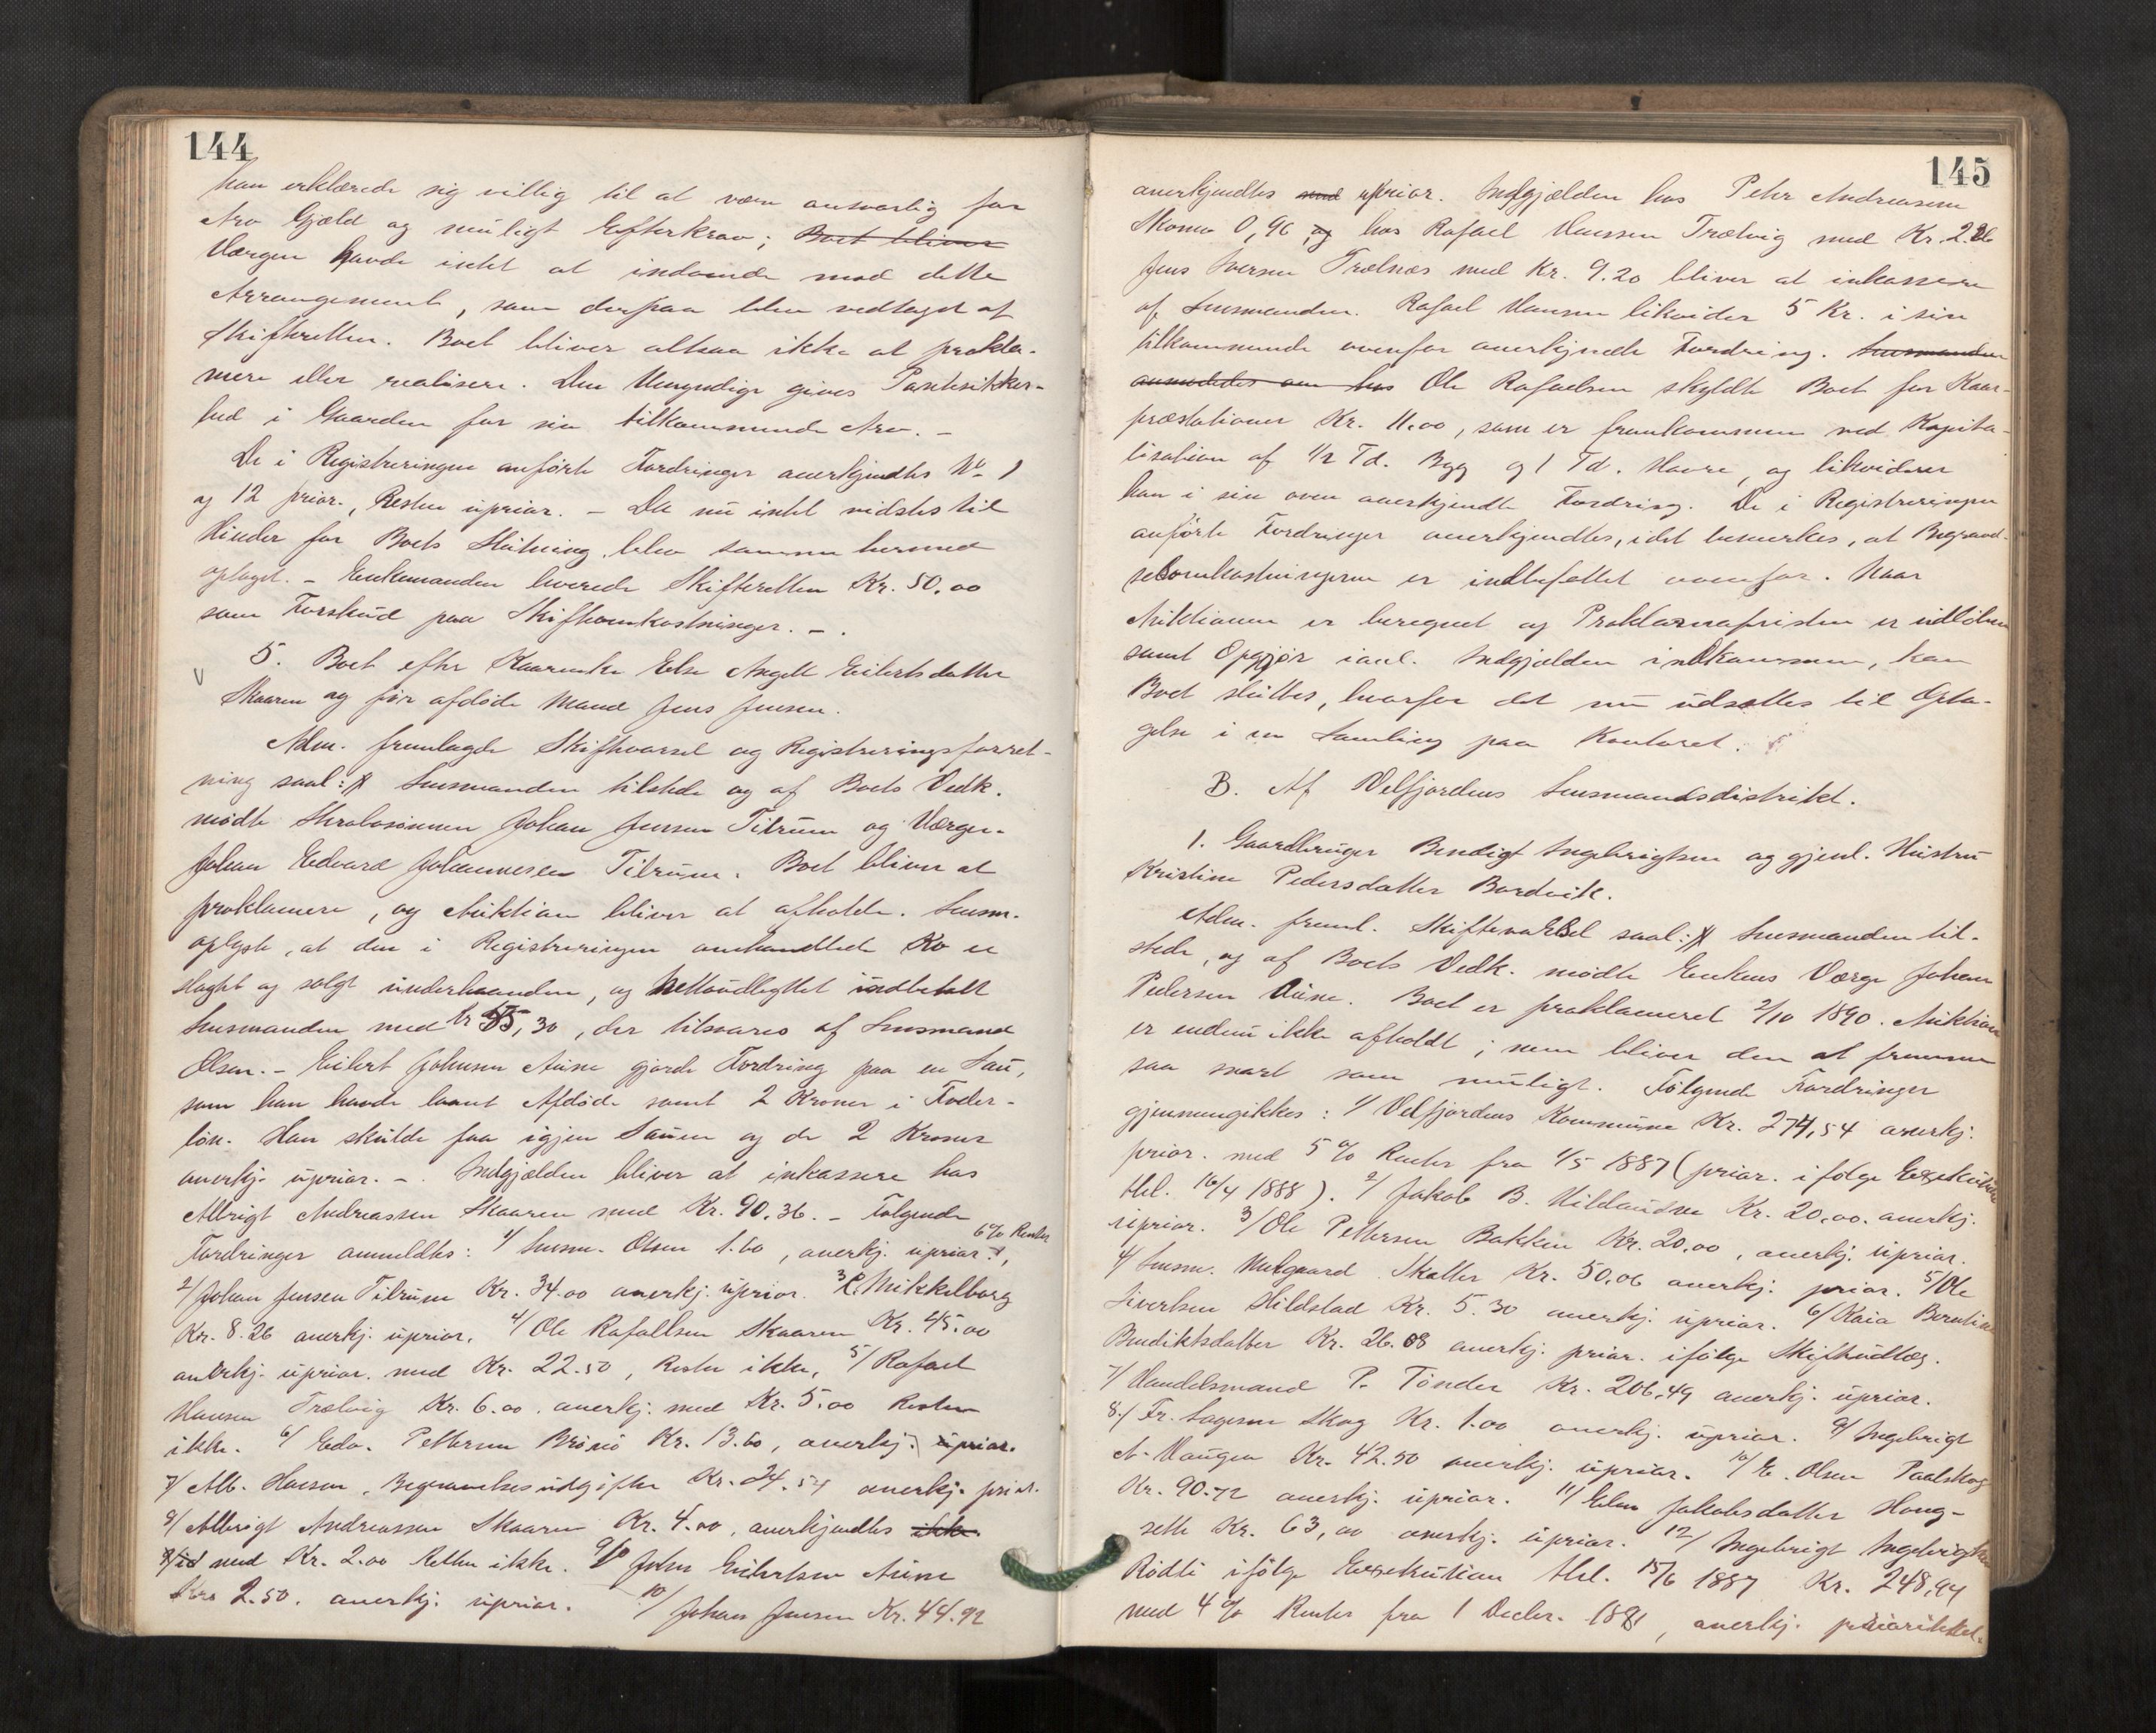 144
han erklærede sig villig til at være ansvarlig for
Arv Gjæld og muligt Efterkrav; Boet bliver
Værgen havde intet at indvende mod dette
Arrangement, som derpaa blev vedtaget af
Skifteretten. Boet bliver altsaa ikke at prokla-
mere eller realisere. Den Umyndige gives Pantesikker-
hed i Gaarden for sin tilkommende Arv. –
De i Registreringen anførte Fordringer anerkjendtes No 1
og 12 prior., Resten uprior. – Da nu intet vidstes til
Hinder for Boets Slutning blev samme hermed
optaget. – Enkemanden leverede Skifteretten Kr. 50.00
som Forskud paa Skifteomkostninger. – .
5. Boet efter Kaarenke Else Angell Eilertsdatter
Skaaren og før afdøde Mand Jens Jensen.
Adm. fremlagde Skiftevarsel og Registreringsforret-
ning saal: Lensmanden tilstede og af Boets Vedk.
mødte Skrabssønnen Johan Jensen Tilrum og Værgen
Johan Edvard Johannesen Tilrum. Boet bliver at
proklamere, og Auktion bliver at afholde. Lensm.
oplyste, at den i Registreringen omhandlede Ko er
slagtet og solgt underhaanden, og Nettoudbyttet indbetalt
Lensmanden med Kr 55,30, der tilsvares af Lensmand
Olsen. – Eilert Johnsen Aune gjorde Fordring paa en Sau,
som han havde laant Afdøde samt 2 Kroner i Foder-
løn. Han skulde faa igjen Sauen og de 2 Kroner
anerkj. uprior. – . Indgjælden bliver at inkassere hos
Albrigt Andreassen Skaaren med Kr. 90.36. – Følgende
Fordringer anmeldtes: 1/ Lensm. Olsen 1.60, anerkj. uprior. 6% Renter,
2/ Johan Jensen Tilrum Kr. 34.00 anerkj. uprior. 3/ Mikkelborg
Kr. 8.26 anerkj. uprior. 4/ Ole Rafaelsen Skaaren Kr. 45.00
anerkj. uprior. med Kr. 22.50, Resten ikke, 5/ Rafael
Hansen Trælvig Kr. 6.00. anerkj. med Kr. 5.00 Resten
ikke. 6/ Edv. Pettersen Brønø Kr. 13.60, anerkj. uprior.
7/ Alb. Hansen, Begravelsesudgifter Kr. 24.54 anerkj. prior.
8/ Albrigt Andreassen Skaaren Kr. 4.00, anerkjendtes ikke.
med Kr. 2.00 Resten ikke. 9/ John Eilertsen Aune
Kr 2.50. anerkj. uprior. 10/ Johan Jensen Kr. 44.92
145
anerkjendtes med uprior. Indgjælden hos Peter Andreassen
Momo 0,96, og hos Rafael Hanssen Trælvig med Kr. 2.26
Jens Iversen Trælnæs med Kr. 9.20 bliver at inkassere
af Lensmanden. Rafael Hansen likvider 5 Kr. i sin
tilkommende ovenfor anerkjendte Fordring. Lensmanden
anmodedes om hos Ole Rafaelsen skyldte Boet for Kaar-
præstationer Kr. 11.00, som er fremkommen ved Kapita-
lisation af 1/2 Td. Byg og 1 Td. Havre, og likviderer
han i sin oven anerkjendte Fordring. De i Registreringen
anførte Fordringer anerkjendtes, idet bemerkes, at Begravel-
sesomkostningerne er indbefattet ovenfor. Naar
Auktionen er beregnet og Proklamafristen er udløben
samt Opgjør ianl. Indgjælden indkommen, kan
Boet sluttes, hvorfor det nu udsættes til Opta-
gelse i en Samling paa Kontoret.
B. Af Velfjordens Lensmandsdistrikt.
1. Gaardbruger Bendigt Ingebrigtsen og gjenl. Hustru
Kristine Pedersdatter Bordvik.
Adm. freml. Skiftevarsel saal: Lensmanden til-
stede, og af Boets Vedk. mødte Enkens Værge Johan
Pedersen Aune. Boet er proklameret 2/10 1890. Auktion
er endnu ikke afholdt; men bliver den at fremme
saa snart som muligt. Følgende Fordringer
gjennemgikkes: 1/ Velfjordens Kommune Kr. 274,54 anerkj.
prior. med 5% Renter fra 1/5 1887 (prior. i følge Exekution
thl. 16/4 1888). 2/ Jakob B. Hildaudsen Kr. 20.00. anerkj.
uprior. 3/ Ole Pettersen Bakken Kr. 20.00, anerkj. uprior.
4/ Lensm. Melgaard Skatter Kr. 50.06 anerkj. prior. 5/ Ole
Sivertsen Hildstad Kr. 5.30 anerkj. uprior. 6/ Kaia Berntine
Bendiktsdatter Kr. 26.08 anerkj. prior. ifølge Skifteudlæg.
7/ Handelsmand P. Tønder Kr. 206,49 anerkj. uprior.
8./ Fr. Sagesen Skog Kr. 1.00 anerkj. uprior. 9/ Ingebrigt
A. Haugen Kr. 42.50 anerkj. uprior. 10/ E. Olsen Paalskog
Kr. 90.72 anerkj. uprior. 11/ Elen Jakobsdatter Hong-
sett Kr. 63,00 anerkj. uprior. 12/ Ingebrigt Ingebrigtsen
Rødli ifølge Exekution thl. 15/6 1887 Kr. 248,94
med 4% Renter fra 1 Decbr. 1881, anerkj. prioritetet.